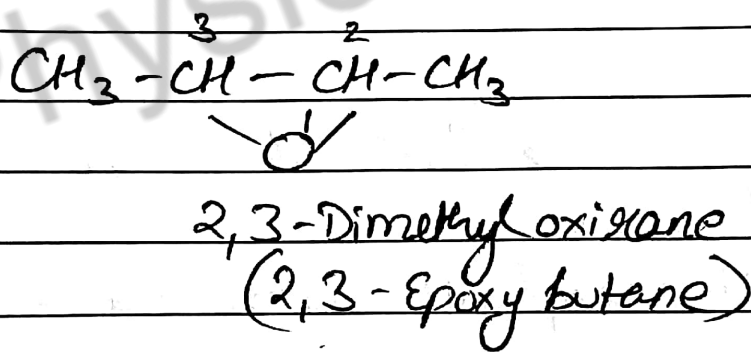 Physic
3 2
CH3 - CH - CH - CH3
1
O
2,3-Dimethyl oxirane
(2,3-Epoxy butane)